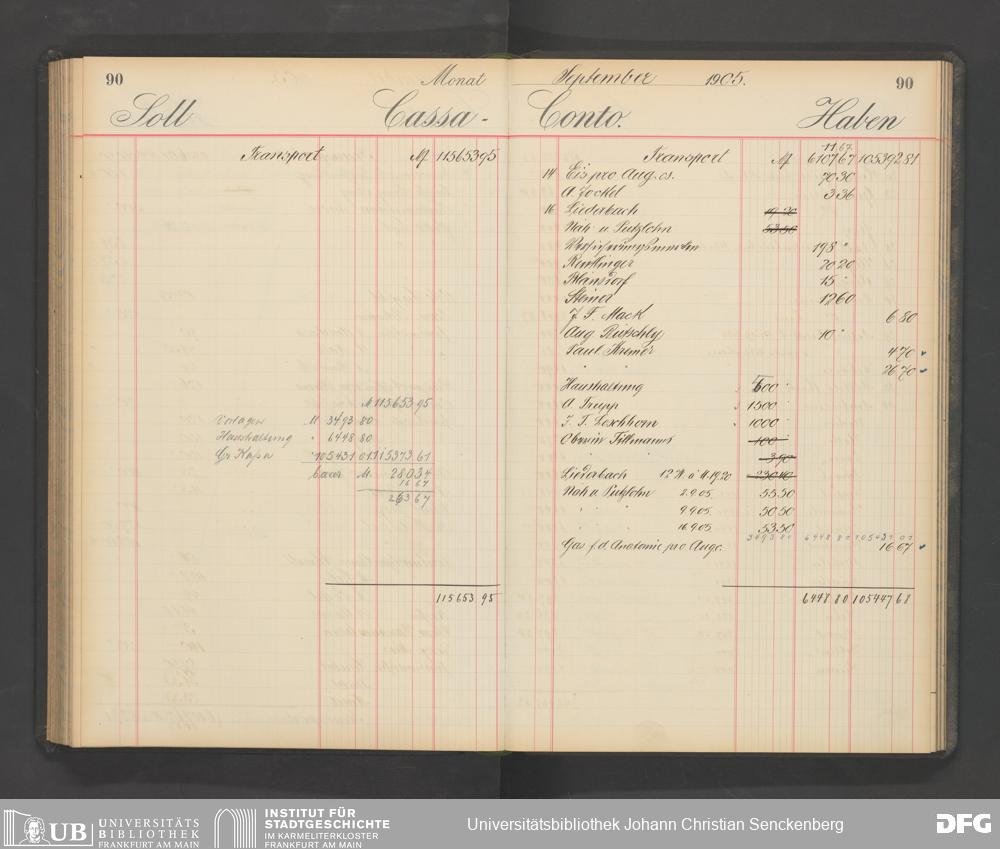 90
Monat
Soll Cassa-
Transport M 115653 95
M 115653 95
Vorlagen M 3493 80
Haushaltung " 6448 80
Gr. Kasse 105431 01 115373 61
baar M. 280 34
16 67
263 67
115653 95
September 1905.
90
Conto. Haben
11.67.
Transport M 6107 67 105392 81
14 Eis pro Aug. cs. 70 30
A. Jockel 3 36
16 Liederbach 19 20
Näh- u Putzlohn 53 50
198 "
Reutlinger 20 20
15 "
Steiner 12 60
J. F. Mack 6 80
Aug 10 "
Paul Kremer 4 70
" " 26 70
Haushaltung 600 "
A Trupp 1500 "
J. T. Loschhorn 1000 "
Oberin Tillmanns 100
" " 3 90
Liederbach 12 à M. 19.20 230 40
Näh u. Putzlohn 2.9.05. 55 50
" " 9.9.05. 50 50
" " 16.9.05. 53 50
3493 80 6448 80 105431 01
Gas f. d. Anatomie pro Augc. 16 67
6448 80 105447 68
UB UNIVERSITÄTS
BIBLIOTHEK
FRANKFURT AM MAIN
INSTITUT FÜR
STADTGESCHICHTE
IM KARMELITERKLOSTER
FRANKFURT AM MAIN
Universitätsbibliothek Johann Christian Senckenberg
DFG